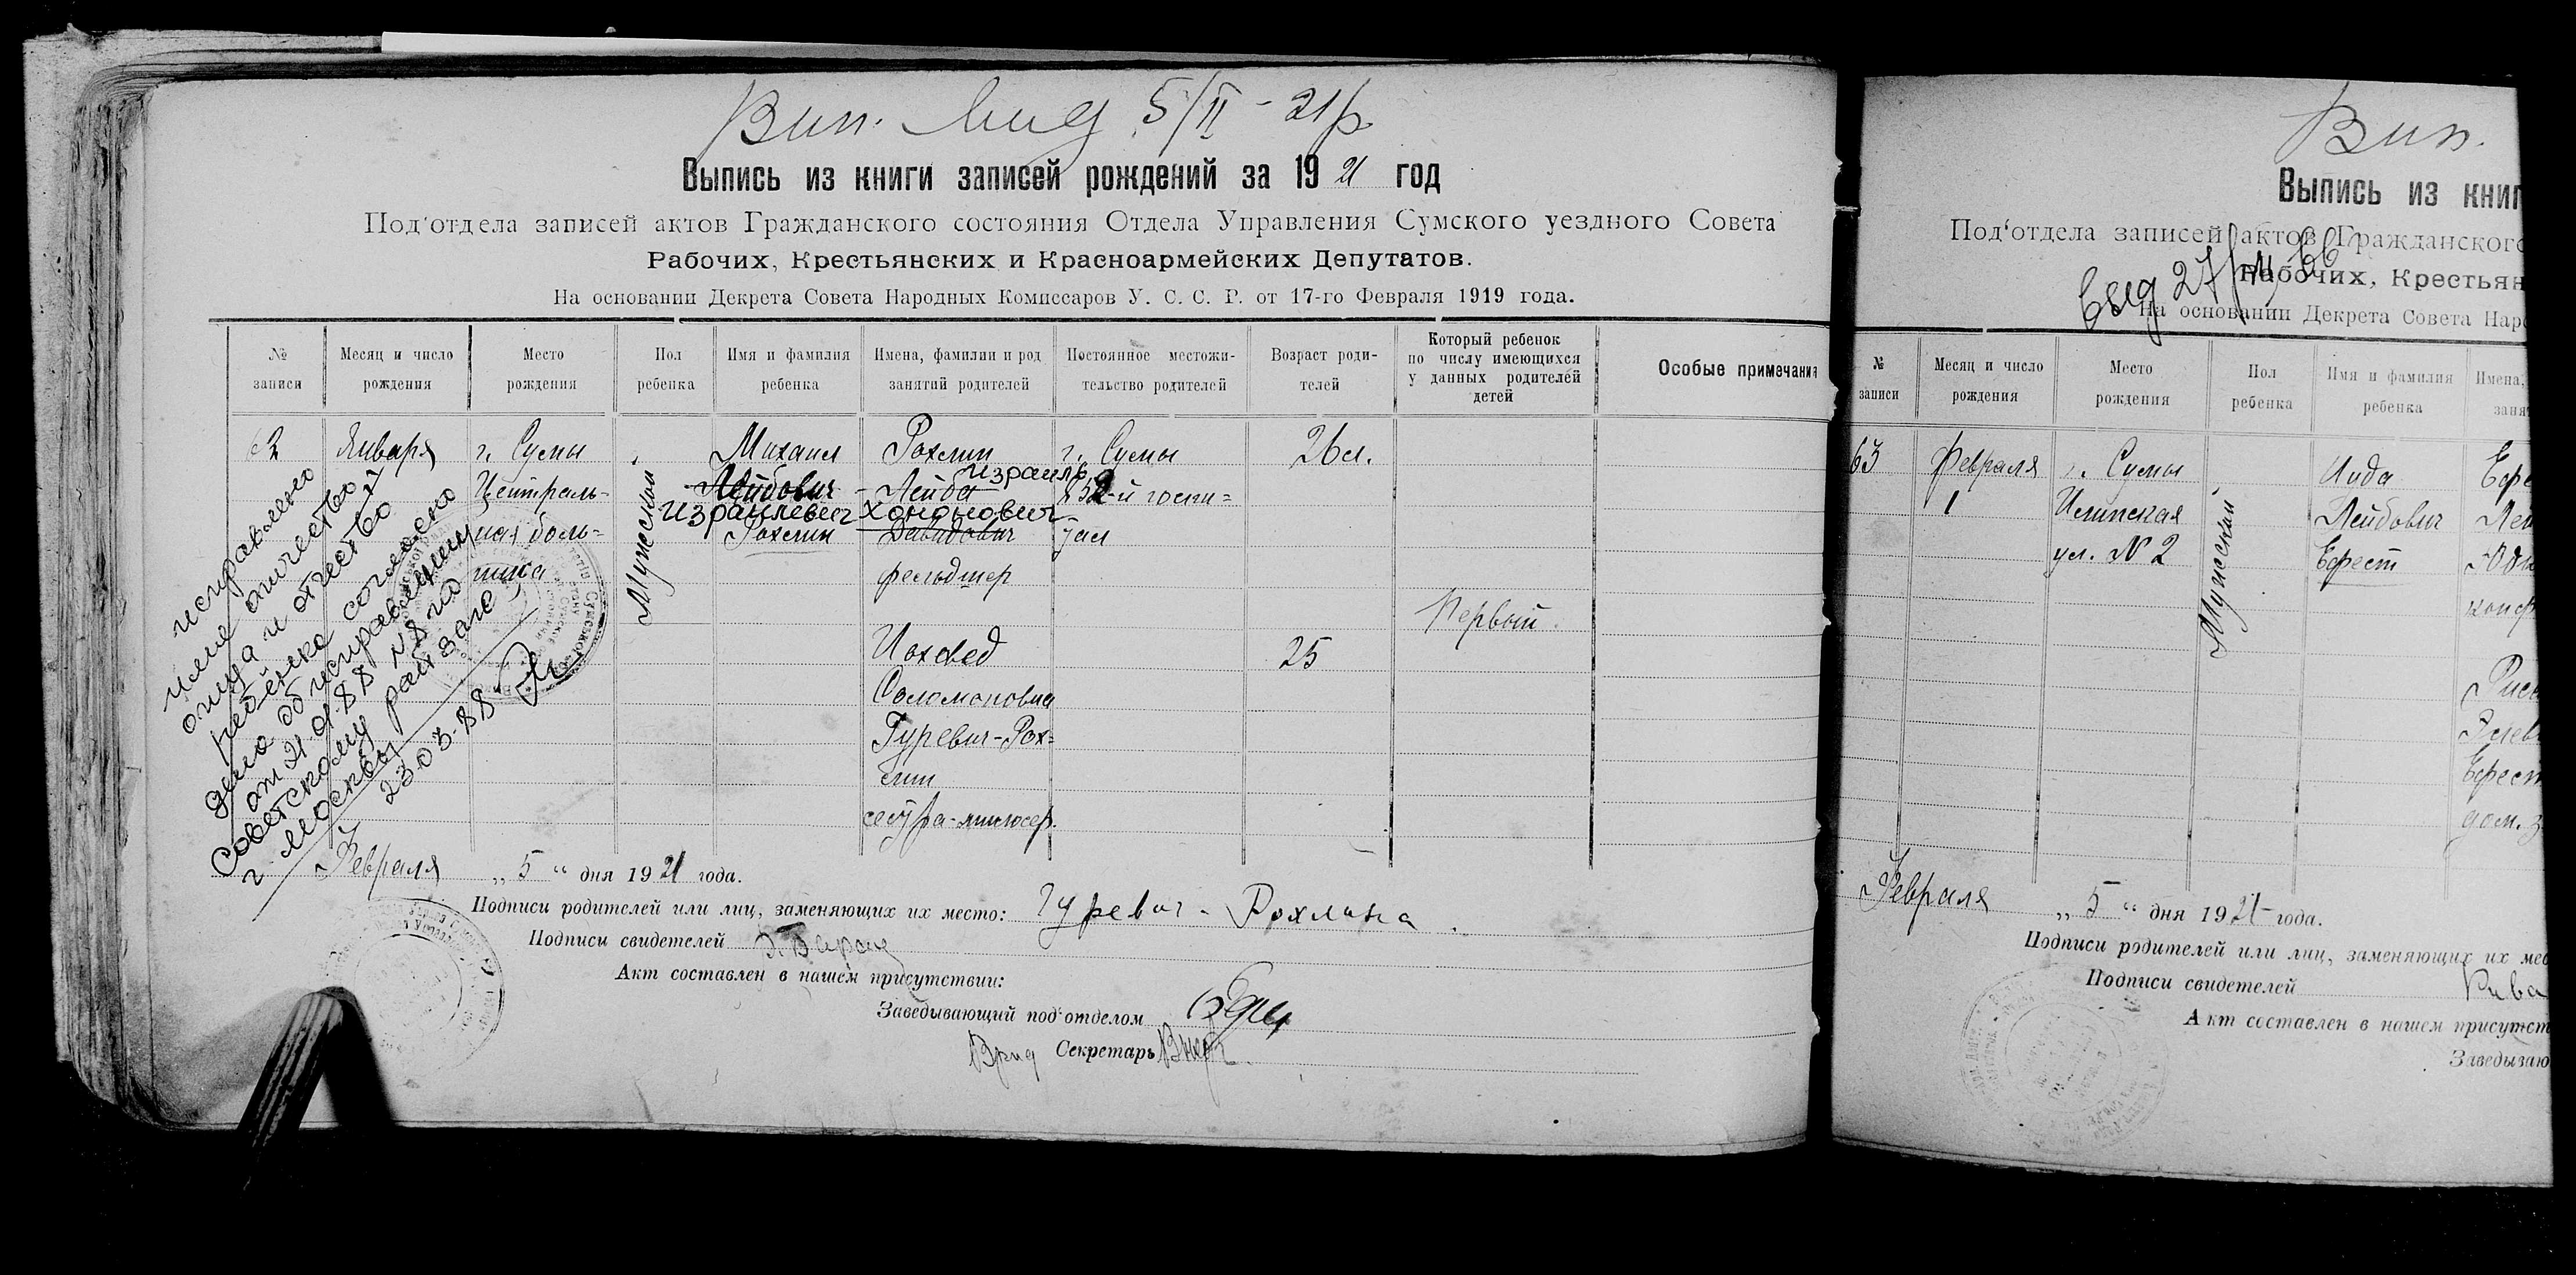 Вип. 5/II - 21р.
Выпись из книги записей рождений за 1921 год
Под'отдела записей актов Гражданского состояния Отдела Управления Сумского уездного Совета
Рабочих, Крестьянских и Красноармейских Депутатов.
На основании Декрета Совета Народных Комиссаров У. С. С. Р. от 17-го Февраля 1919 года.
№ записи
Месяц и число рождения
Место рождения
Пол ребенка
Имя и фамилия ребенка
Имена, фамилии и род занятий родителей
Постоянное местожительство родителей
Возраст родителей
Который ребенок по числу имеющихся у данных родителей детей
Особые примечания
62
Января
г. Сумы
Централь-
ная боль-
ница
Мужской
Михаил
Лейбович
Израилевич
Рохлин
Рохлин
Израиль
Лейба
Хононович
Давидович
фельдшер
Иохвед
Соломоновна
Гуревич-Рох-
лин
сестра-милосер.
г. Сумы
52-й госпи=
тал
26 л.
25
Первый
исправлено
имя отчество
отца и отчество
ребёнка согласно
дела об исправлении
от 21.01.88 № 8 по
Советскому райзагс
г Москвы
23.03.88
Февраля „ 5 “ дня 1921 года.
Подписи родителей или лиц, заменяющих их место: Гуревич - Рохлина
Подписи свидетелей
Акт составлен в нашем присутствии:
Заведывающий под'отделом
Врид Секретарь
Вип.
Выпись из книг
Под'отдела записей актов Гражданского
Рабочих, Крестьян
На основании Декрета Совета Наро
№ записи
Месяц и число рождения
Место рождения
Пол ребенка
Имя и фамилия ребенка
Имена,
заня
63
Февраля
1
г. Сумы
Илинская
ул. № 2
Мужской
Иуда
Лейбович
Берест
Февраля „ 5 “ дня 1921 года.
Подписи родителей или лиц, заменяющих их мес
Подписи свидетелей Рива
Акт составлен в нашем присутст
Заведываю